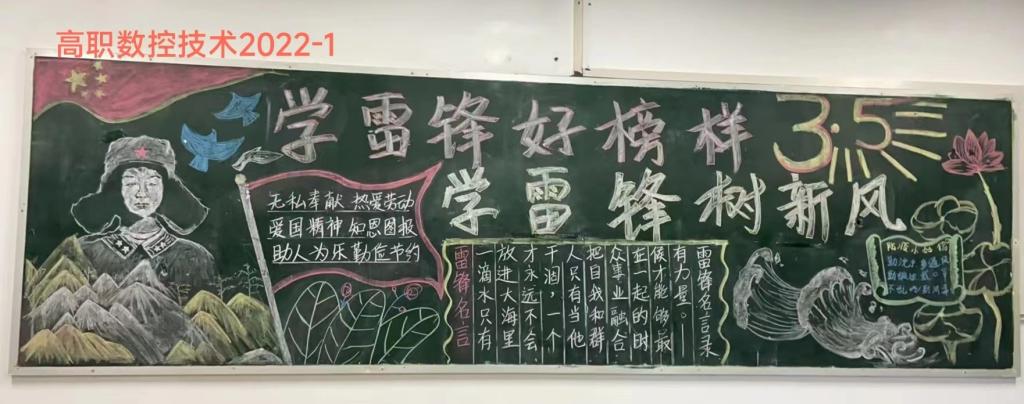 高职数控技术2022-1
学雷锋好榜样
3·5
学雷锋树新风
无私奉献 热爱劳动
爱国精神 知恩图报
助人为乐 勤俭节约
雷锋名言
一滴水只有
放进大海里
才永远不会
干涸，一个
人只有当他
把自我和群
众事业融合
在一起的时
候才能够最
有力量。
雷锋名言录
勤洗手多通风